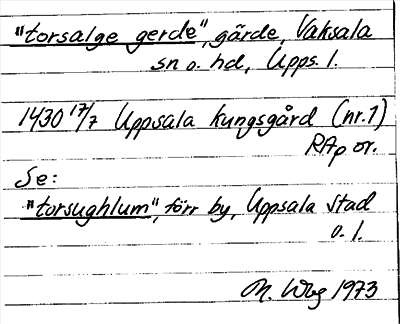 "torsalge gerde", gärde, Vaksala
sn o. hd, Upps. l.
1430 17/7 Uppsala kungsgård (nr. 1)
RAp or.
Se:
"torsughlum", förr by, Uppsala stad
o. l.
M. Wbg 1973